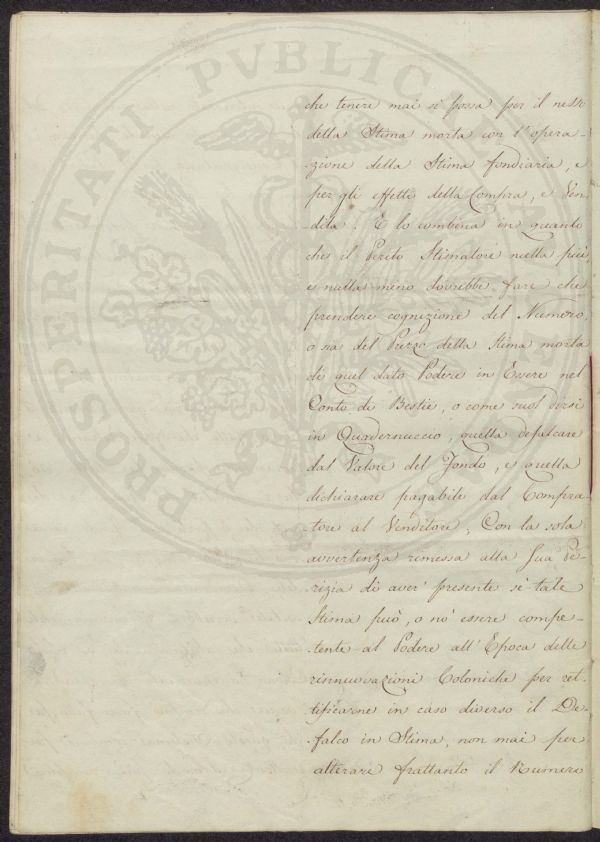 PROSPERITATI PVBLICAE
che tenere mai si possa per il nesso
della Stima morta con l'opera-
-zione della Stima fondiaria, e
per gli effetti della Compra, e Ven-
-dita. E lo combina in quanto
che il Perito Stimatore nulla più
e nulla meno dovrebbe fare che
prendere cognizione del Numero,
o sia del Prezzo della Stima morta
di quel dato Podere in Essere nel
Conto di Bestie, o come suol dirsi
in Quadernuccio, quella defalcare
dal Valore del Fondo, e quella
dichiarare pagabile dal Compra-
-tore al Venditore, Con la sola
avvertenza rimessa alla Sua Pe-
-rizia di aver' presente se tale
Stima può, o nò essere compe-
-tente al Podere all'Epoca delle
rinnuovazioni Coloniche per ret-
-tificarne in caso diverso il De-
-falco in Stima, non mai per
alterare frattanto il Numero